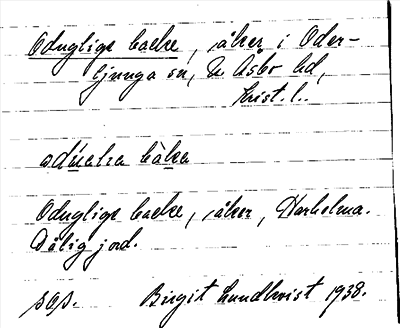 Oduglige backe, åker i Oder-
ljunga sn, N Åsbo hd,
Krist. l..
Oduglige backe, åker, Harholma.
Dålig jord.
Birgit Lundkvist 1938.